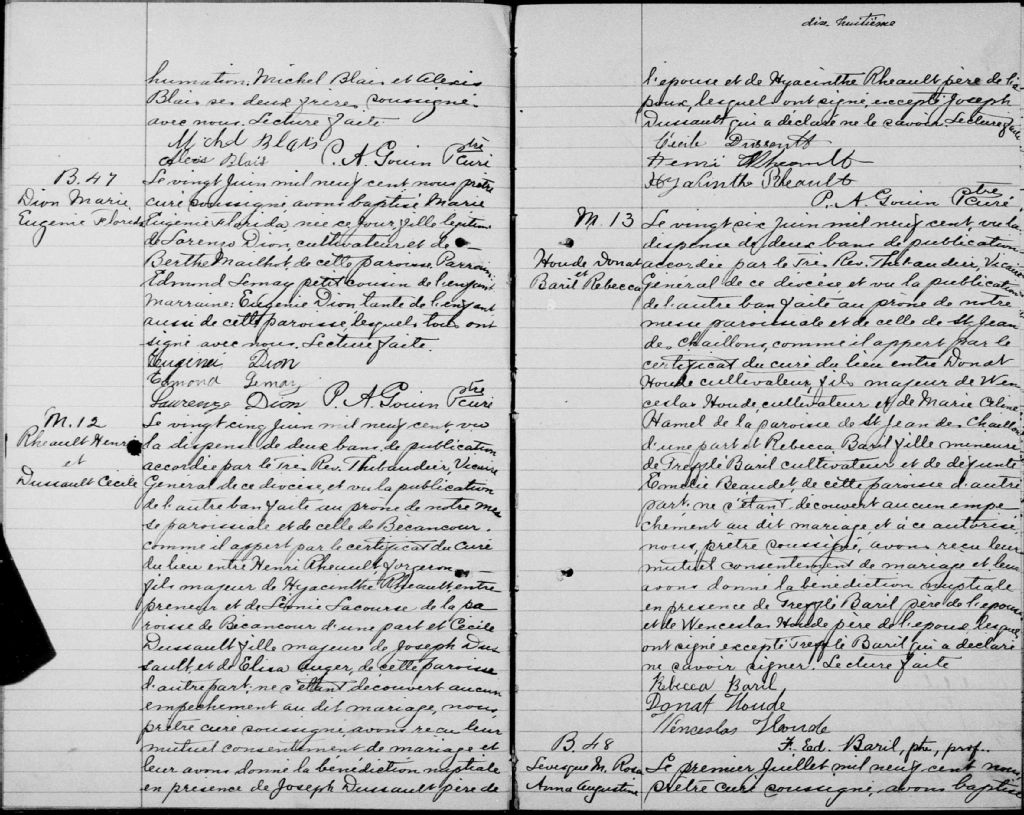 humation, Michel Blais et Alexis
Blais ses deux frères soussignés
avec nous. Lecture faite
Michel Blais
Alexis Blais P. A. Gouin Ptre Curé
B. 47
Dion Marie
Eugenie Florida
Le vingt Juin mil neuf cent nous prêtre
curé soussigné avons baptisé Marie
Eugenie Florida, née ce jour, fille legitime
de Lorenzo Dion, cultivateur et de
Berthe Mailhot, de cette paroisse. Parrain:
Edmond Lemay petit cousin de l'enfant
marraine: Eugenie Dion tante de l'enfant
aussi de cette paroisse, lesquels tous ont
signé avec nous. Lecture faite.
Eugenie Dion
Edmond Lemay
Laurenze Dion P. A. Gouin Ptre Curé
M. 12
Rheault Henri
et
Dussault Cecile
Le vingt cinq Juin mil neuf cent, vu
la dispense de deux bans de publication
accordée par le Tres Rev. Thibaudier, Vicaire
General de ce diocèse, et vu la publication
de l'autre ban faite au prone de notre mes
se paroissiale et de celle de Becancour.
comme il appert par le certificat du curé
du lieu entre Henri Rheault forgeron
fils majeur de Hyacinthe Rheault, entre
preneur et de Léonie Lacourse de la pa
roisse de Becancour d'une part et Cécile
Dussault fille majeure de Joseph Dus
sault, et de Elisa Auger, de cette paroisse
d'autre part; ne s'étant découvert aucun
empechement au dit mariage, nous,
prêtre curé soussigné, avons reçu leur
mutuel consentement de mariage et
leur avons donné la bénédiction nuptiale
en presence de Joseph Dussault père de
dix huitième
l'epouse et de Hyacinthe Rheault père de l'é
poux, lesquels ont signé, excepté Joseph
Dussault qui a déclaré ne le savoir. Lecture faite
Cécile Dussault
Henri Rheault
Hyacinthe Rheault
P. A. Gouin Ptre Curé
M. 13
Houde Donat
et
Baril Rebecca
Le vingt six Juin mil neuf cent, vu la
dispense de deux bans de publication
accordée par le Tres. Rev. Thibaudier, Vicaire
General de ce diocèse et vu la publication
de l'autre ban faite au prone de notre
messe paroissiale et de celle de St Jean
des Chaillons, comme il appert par le
certificat du curé du lieu entre Donat
Houde cultivateur, fils majeur de Wen
ceslas Houde, cultivateur et de Marie Celine
Hamel de la paroisse de St Jean des Chaillons
d'une part et Rebecca Baril fille mineure
de Trefflé Baril cultivateur et de défunte
Beaudet, de cette paroisse d'autre
part; ne s'étant découvert aucun empe
chement au dit mariage et à ce autorisé
nous, prêtre soussigné, avons reçu leur
mutuel consentement de mariage et leur
avons donné la bénédiction nuptiale
en presence de Trefflé Baril père de l'epouse
et de Wenceslas Houde père de l'epoux, lesquels
ont signé excepté Trefflé Baril qui a déclaré
ne savoir signer. Lecture faite
Rebecca Baril
Donat Houde
Venceslas Houde
F. Ed. Baril, ptre, prof.
B. 48
Levesque M. Rosa
Anna Augustine
Le premier Juillet mil neuf cent nous
prêtre curé soussigné, avons baptisé